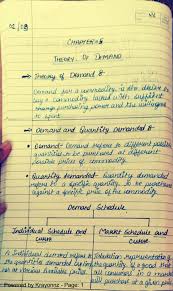 02 | 08
CHAPTER-
THEORY OF DEMAND
→ Theory of Demand :-
Demand for a commodity is the desire to
buy a commodity backed with sufficient
purchasing power and the willingness
to spend
→ Demand and Quantity Demanded :-
• Demand- Demand refers to different possible
quantities to be purchased at different
possible price of commodity.
• Quantity demanded- Quantity demanded
refers to a specific quantity to be purchased
against a specific price of the commodity.
Demand Schedule
Individual Schedule and
curve
Market Schedule and
curve
A Individual demand refers to
the quantities demanded
at various possible prices.
Tabulation representation of
the quantity of a good that
all consumers in a
will purchase at a given price
Powered by Kroyonnz - Page 1